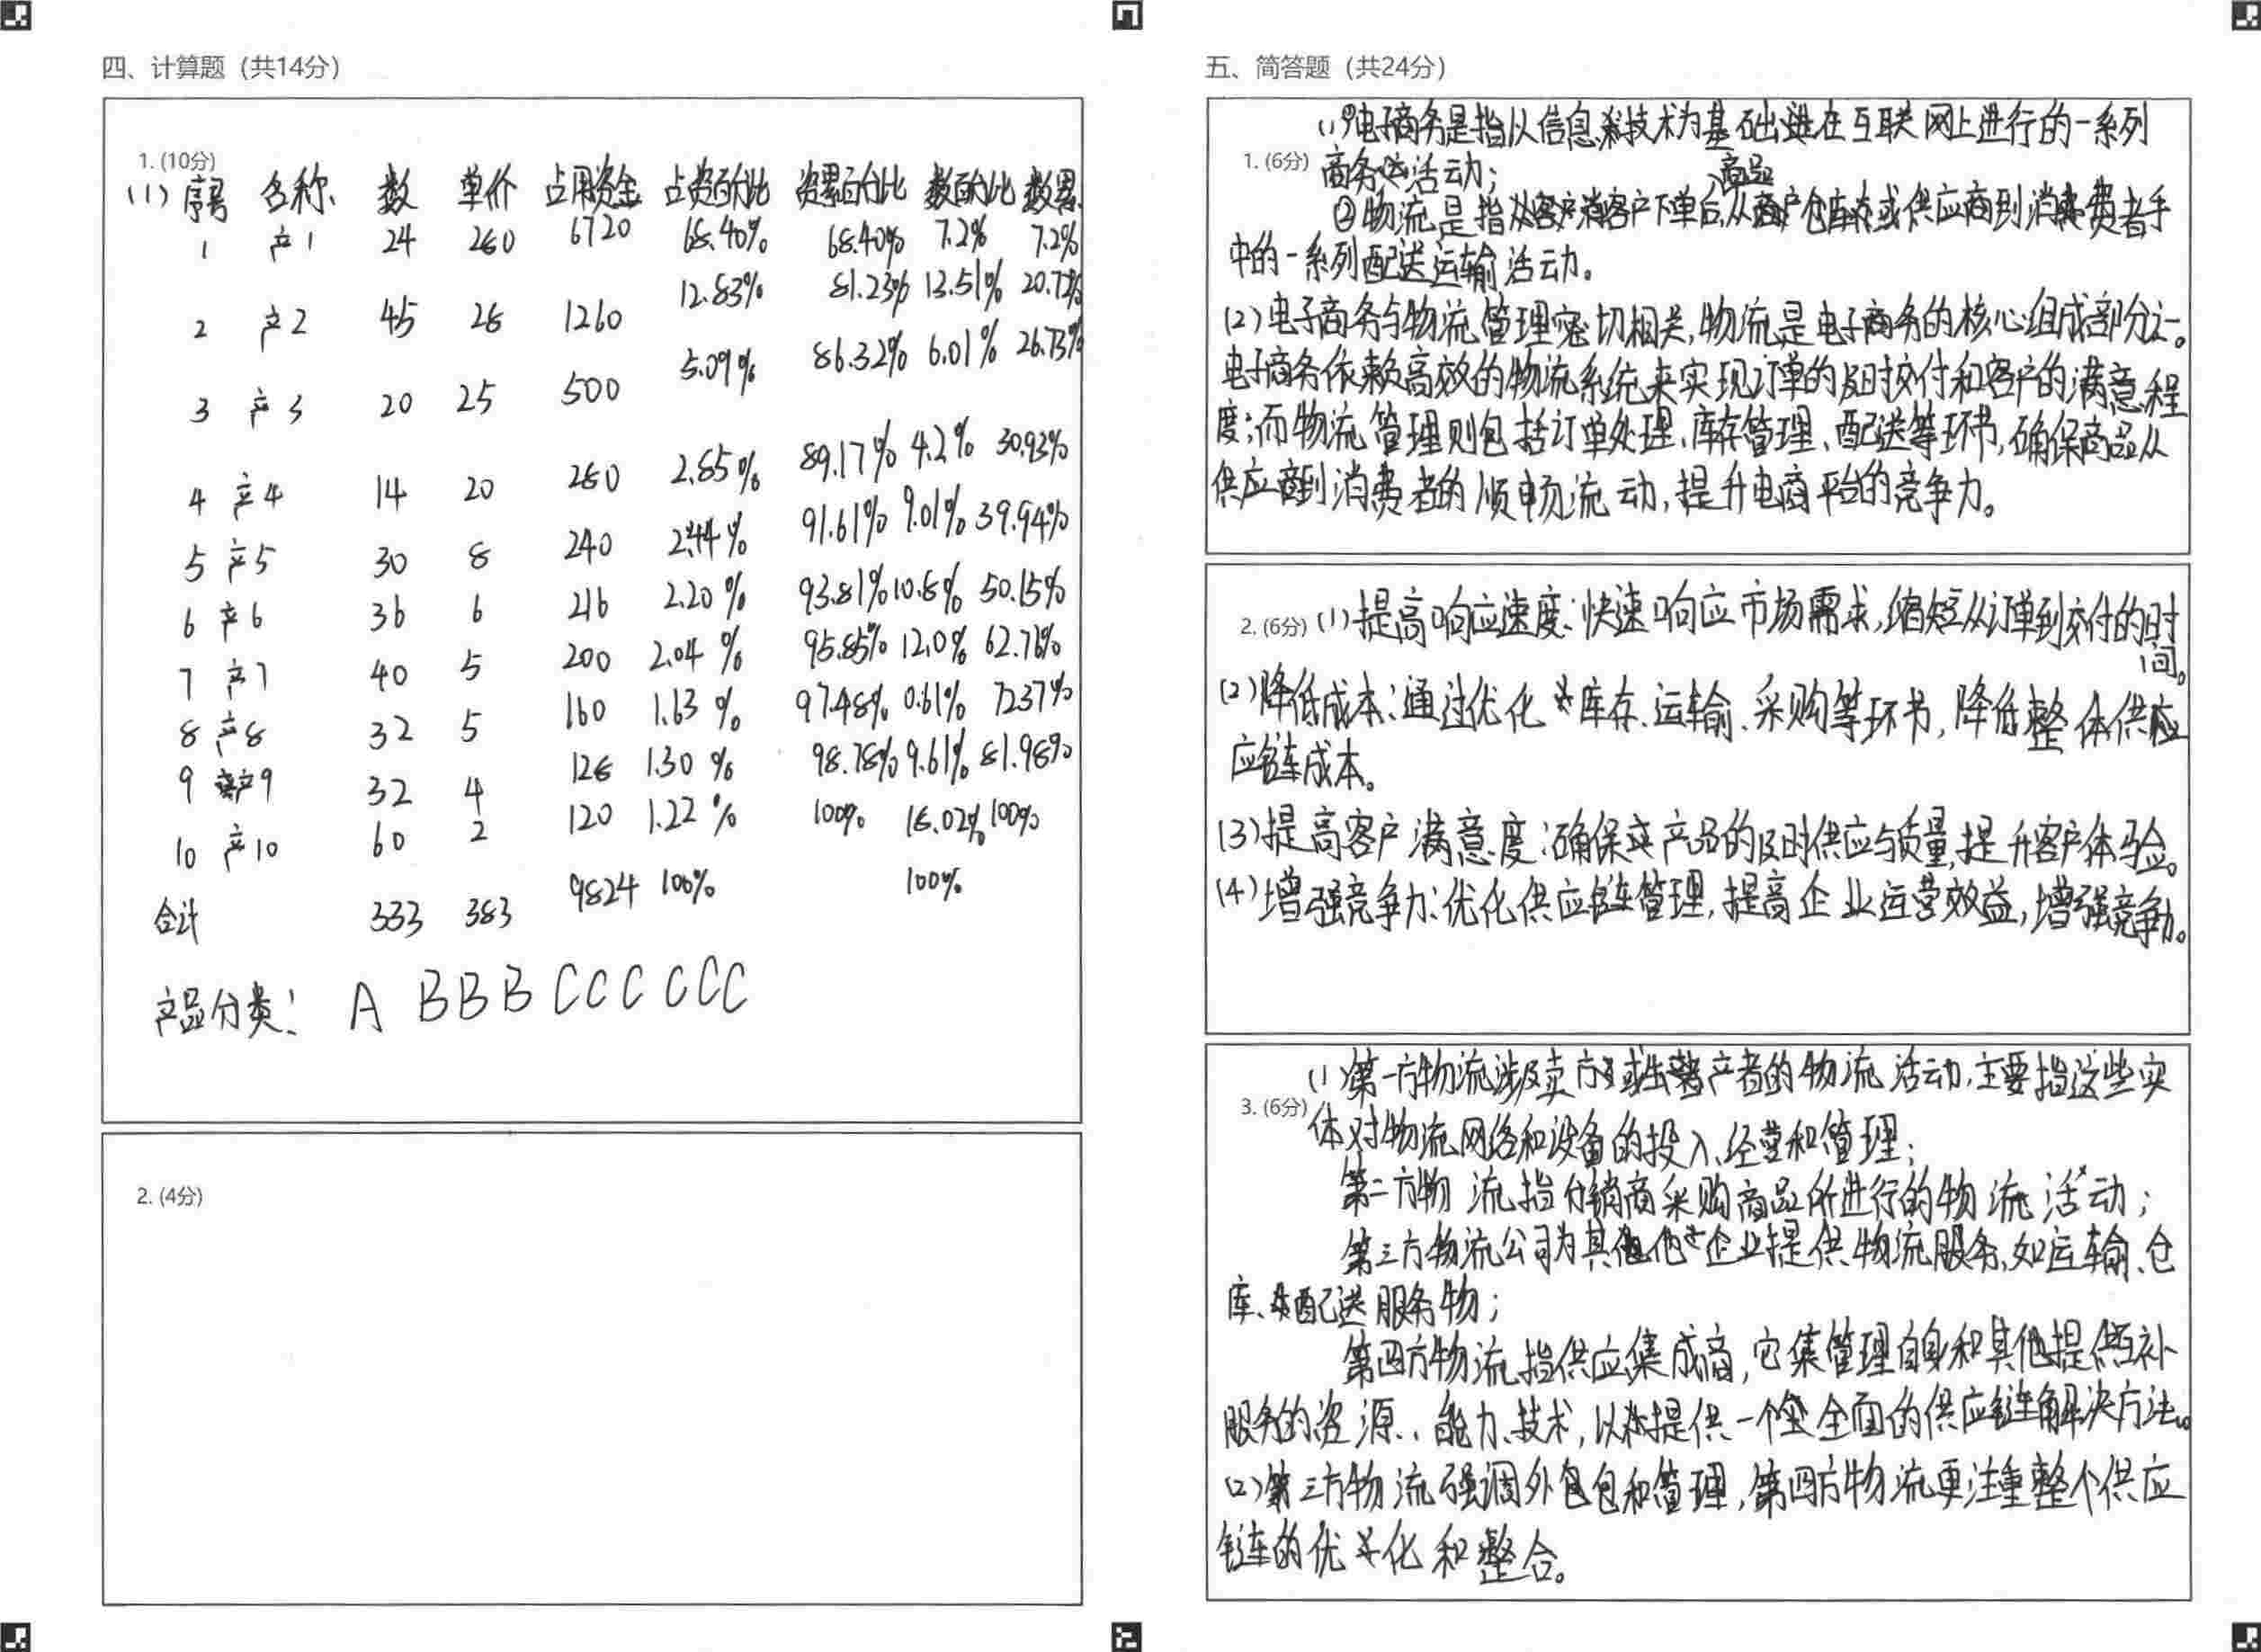 四、计算题（共14分）
1. (10分)
(1) 序号 名称 数 单价 占用资金 占资百分比 资累百分比 数百分比 数累
1 产1 24 280 6720 68.40% 68.40% 7.2% 7.2%
2 产2 45 28 1260 12.83% 81.23% 13.51% 20.72%
3 产3 20 25 500 5.09% 86.32% 6.01% 26.73%
4 产4 14 20 280 2.85% 89.17% 4.2% 30.93%
5 产5 30 8 240 2.44% 91.61% 9.01% 39.94%
6 产6 36 6 216 2.20% 93.81% 10.8% 50.15%
7 产7 40 5 200 2.04% 95.85% 12.0% 62.76%
8 产8 32 5 160 1.63% 97.48% 0.61% 72.37%
9 产9 32 4 128 1.30% 98.78% 9.61% 81.98%
10 产10 60 2 120 1.22% 100% 18.02% 100%
合计 333 383 9824 100% 100%
产品分类： A B B B C C C C C C
2. (4分)
五、简答题（共24分）
(1)①电子商务是指以信息技术为基础进在互联网上进行的一系列
1. (6分) 商务活动；
②物流是指从客户下单后，从商品仓库或供应商到消费者手
中的一系列配送运输活动。
(2)电子商务与物流管理密切相关，物流是电子商务的核心组成部分之一。
电子商务依赖高效的物流系统来实现订单的及时交付和客户的满意程
度；而物流管理则包括订单处理、库存管理、配送等环节，确保商品从
供应商到消费者的顺畅流动，提升电商平台的竞争力。
2. (6分) (1)提高响应速度：快速响应市场需求，缩短从订单到交付的时
间。
(2)降低成本：通过优化库存、运输、采购等环节，降低整体供应
应链成本。
(3)提高客户满意度：确保产品的及时供应与质量，提升客户体验。
(4)增强竞争力：优化供应链管理，提高企业运营效益，增强竞争力。
(1)第一方物流涉及卖方或生产者的物流活动，主要指这些实
3. (6分) 体对物流网络和设备的投入、经营和管理；
第二方物流指分销商采购商品所进行的物流活动；
第三方物流公司为其他企业提供物流服务，如运输、仓
库、配送服务物；
第四方物流指供应集成商，它集管理自身和其他提供互补
服务的资源、能力、技术，以提供一个全面的供应链解决方法。
(2)第三方物流强调外包包和管理，第四方物流更注重整个供应
链的优化和整合。